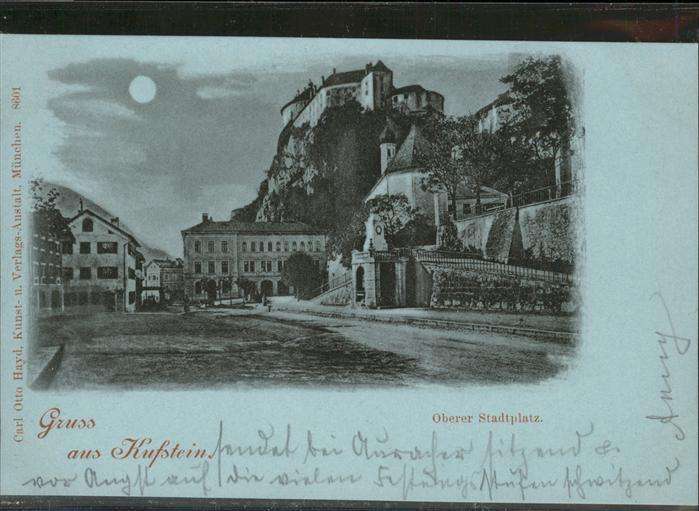 Carl Otto Hayd, Kunst- u. Verlags-Anstalt, München. 8601
Oberer Stadtplatz.
Gruss
aus Kufstein. sendet bei Auracher sitzend &
vor Angst auf die vielen Festungsstufen schwitzend
Anny